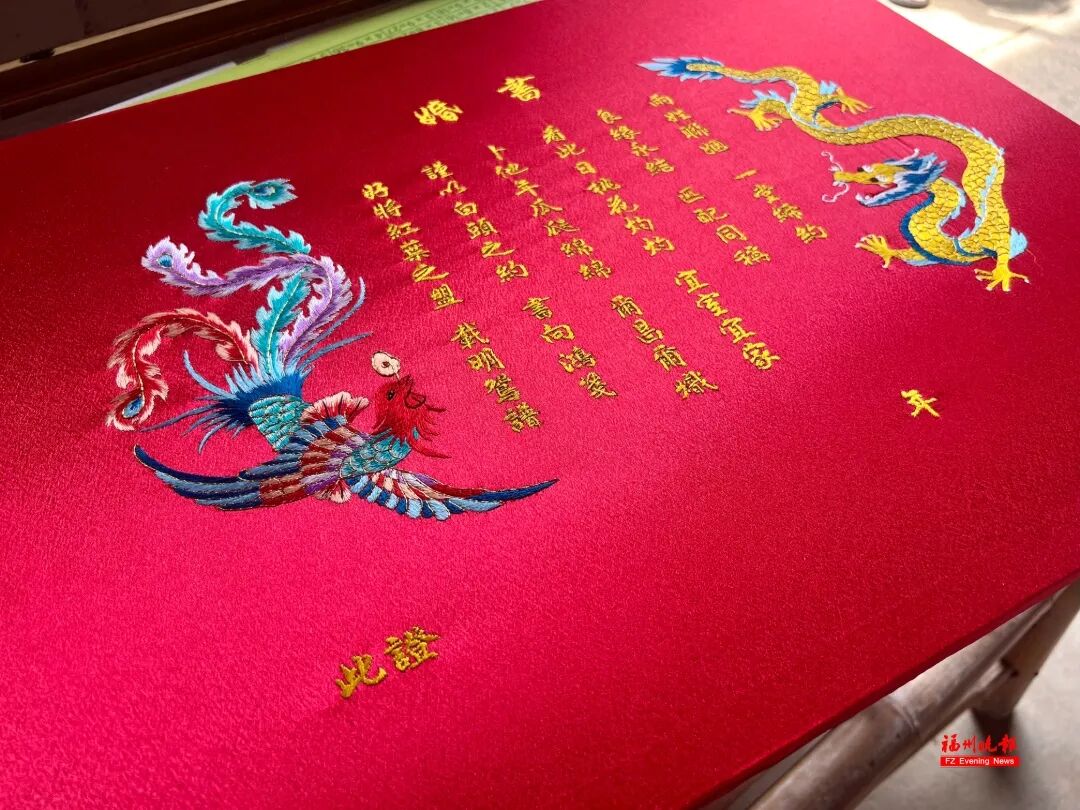 婚書
兩性聯姻 一堂締約
良緣永結 匹配同稱
看此日桃花灼灼 宜室宜家
卜他年瓜瓞綿綿 爾昌爾熾
謹以白頭之約 書向鴻箋
好將紅葉之盟 載明鴛譜
年
此證
福州晚報
FZ Evening News